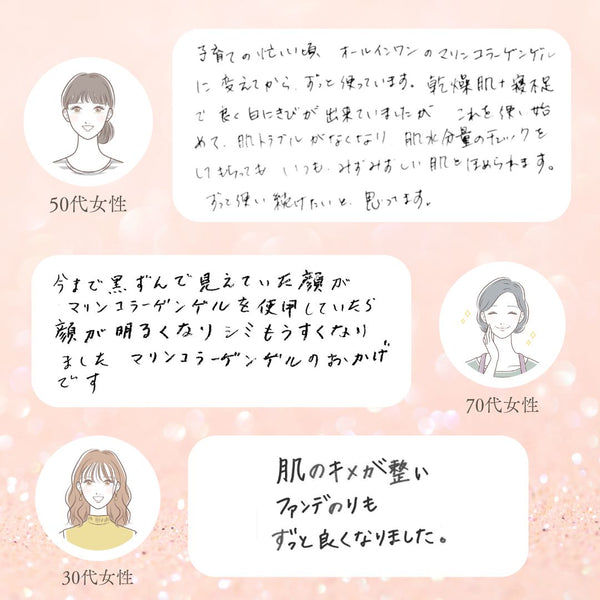 子育ての忙しい頃、オールインワンのマリンコラーゲンゲル
に変えてから、ずっと使っています。乾燥肌+寝不足
で良く白にきびが出来ていましたが これを使い始
めて、肌トラブルがなくなり 肌水分量のチェックを
してもらっても いつも、みずみずしい肌とほめられます。
ずっと使い続けたいと、思ってます。
50代女性
今まで黒ずんで見えていた顔が
マリンコラーゲンゲルを使用していたら
顔が明るくなりシミもうすくなり
ました マリンコラーゲンゲルのおかげ
です
70代女性
肌のキメが整い
ファンデのりも
ずっと良くなりました。
30代女性